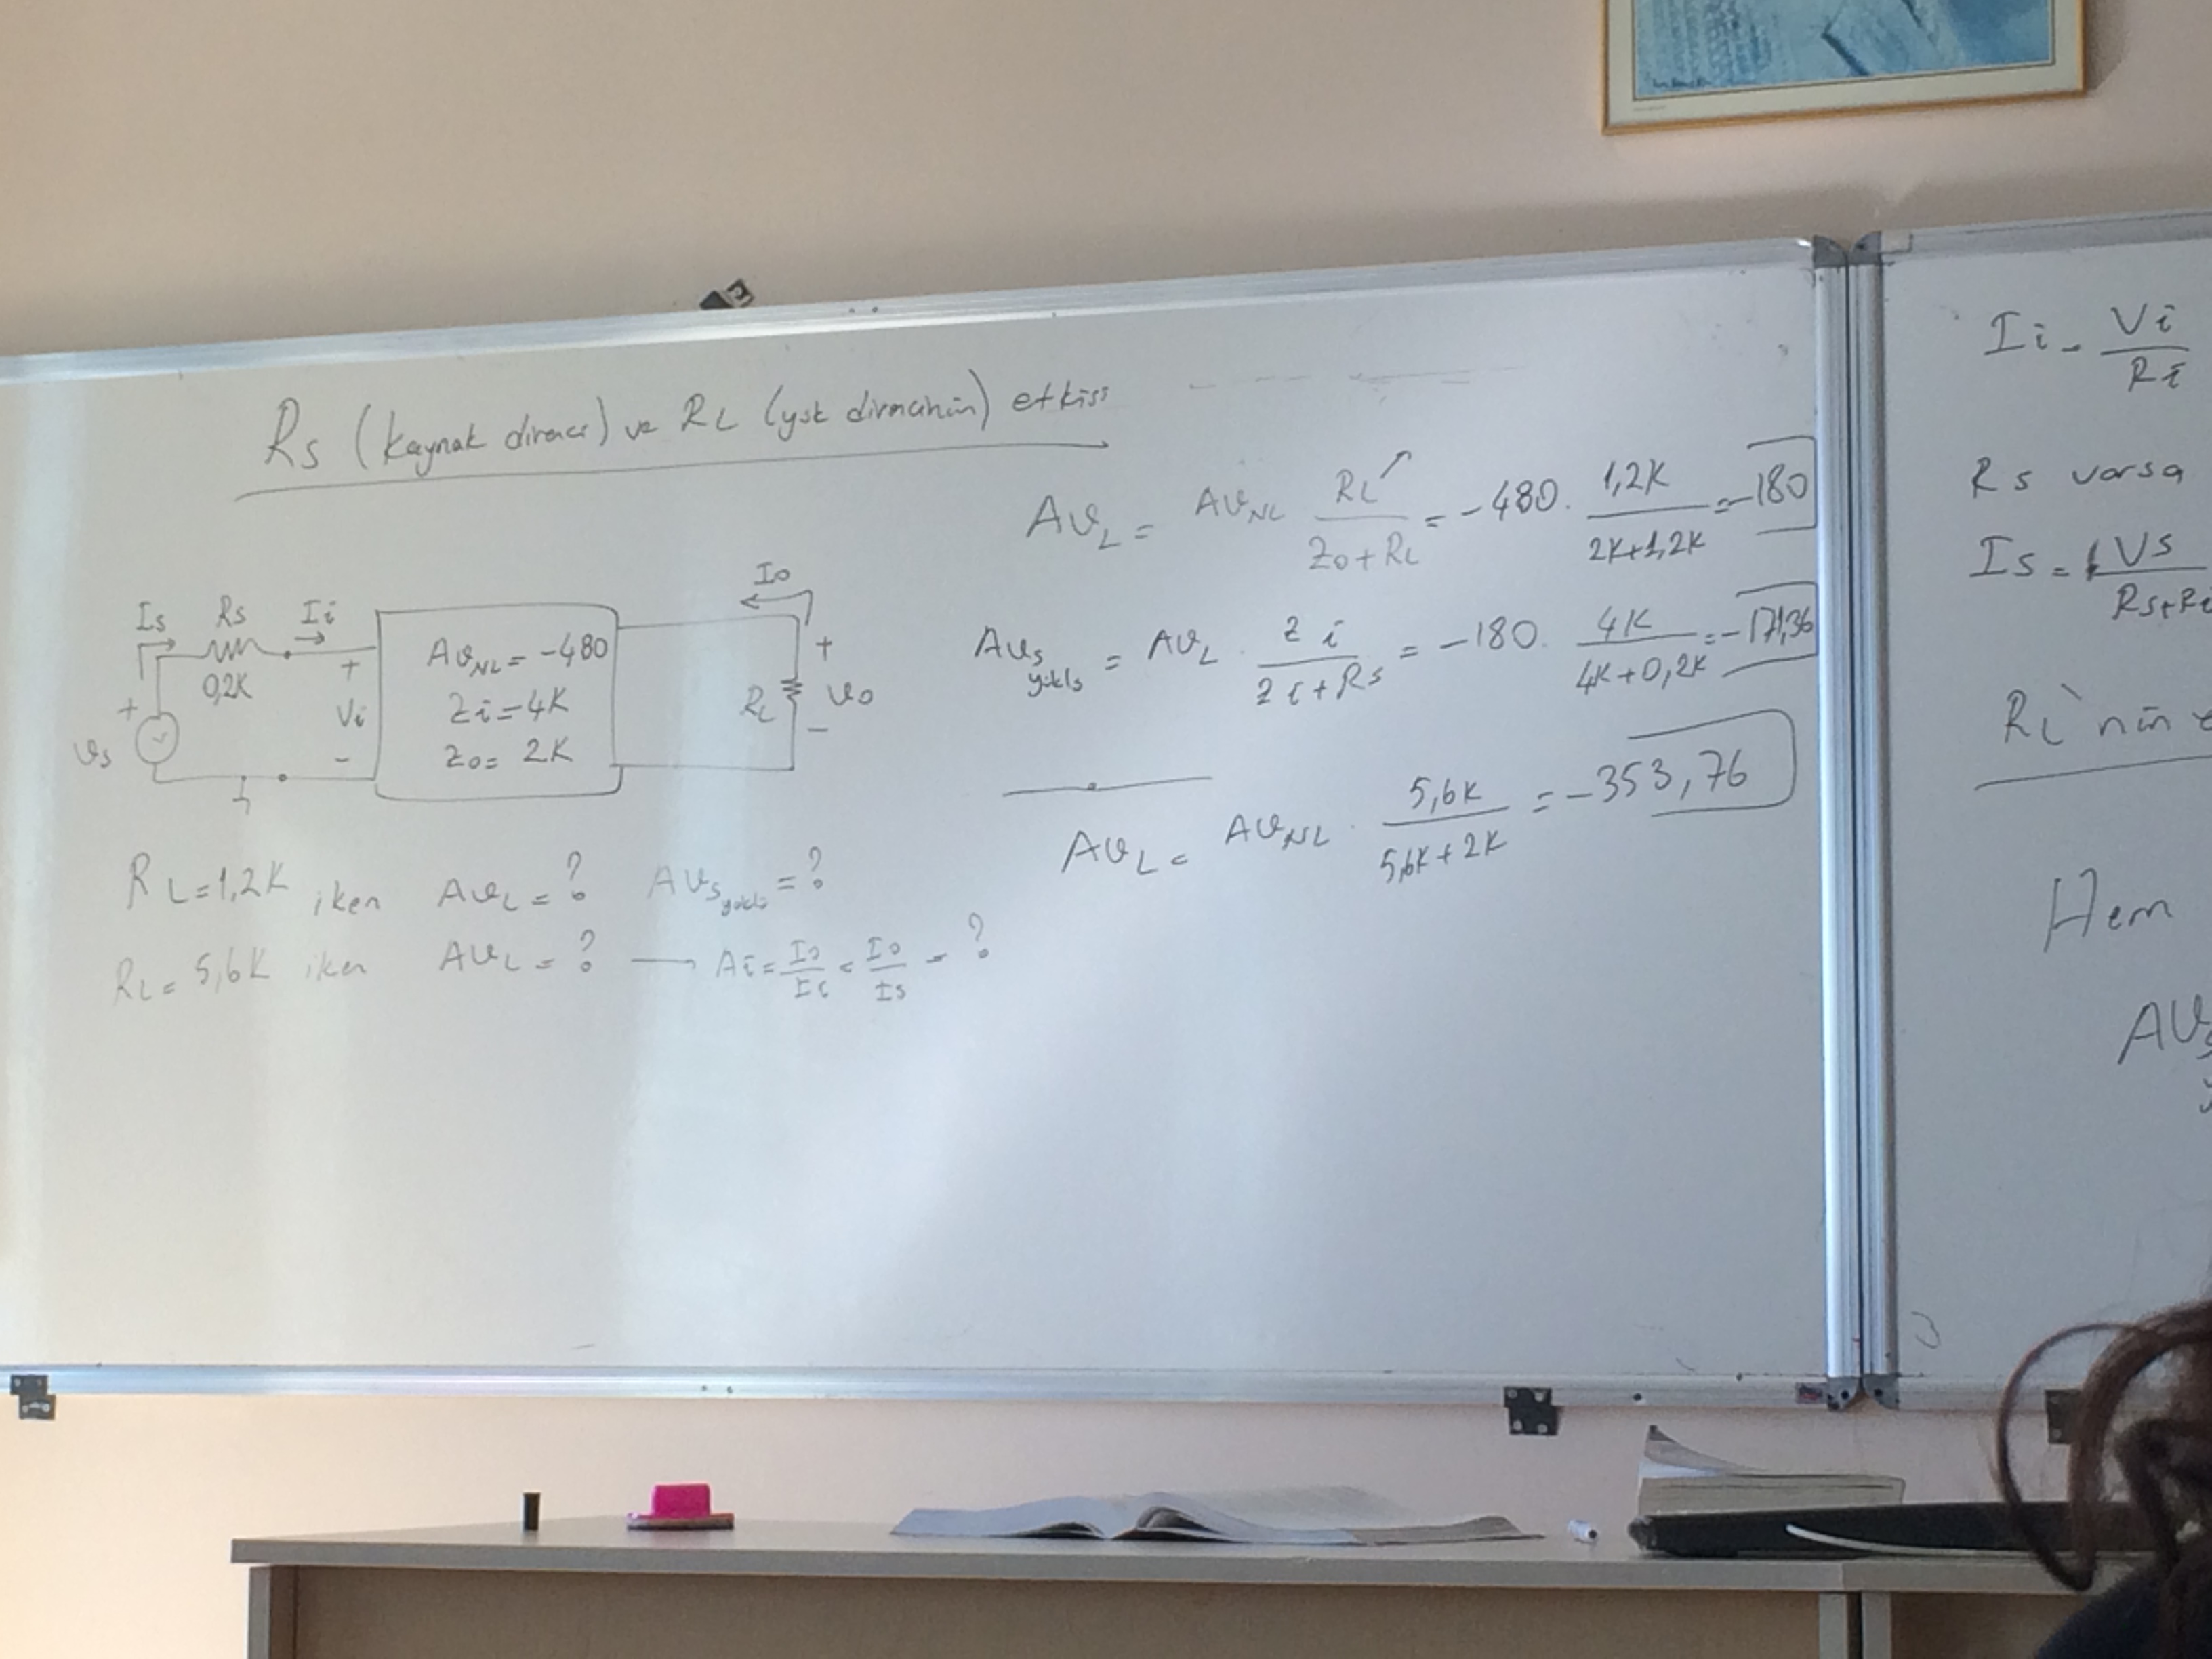 Rs (kaynak direnci) ve RL (yük direncinin) etkisi
Is Rs Ii
0,2K
+
Vs
+
Vi
-
AVNL = -480
Zi = 4K
Zo = 2K
Io
+
RL Vo
-
RL = 1,2K iken AVL = ? AVs yüklü = ?
RL = 5,6K iken AVL = ? → Ai = Io/Ii = Io/Is = ?
AVL = AVNL RL/Zo+RL = -480 . 1,2K/2K+1,2K = -180
AVs yüklü = AVL . Zi/Zi+Rs = -180 . 4K/4K+0,2K = -171,36
AVL = AVNL . 5,6K/5,6K+2K = -353,76
Ii = Vi/Ri
Rs varsa
Is = Vs/Rs+Ri
RL'nin
Hem
AVs